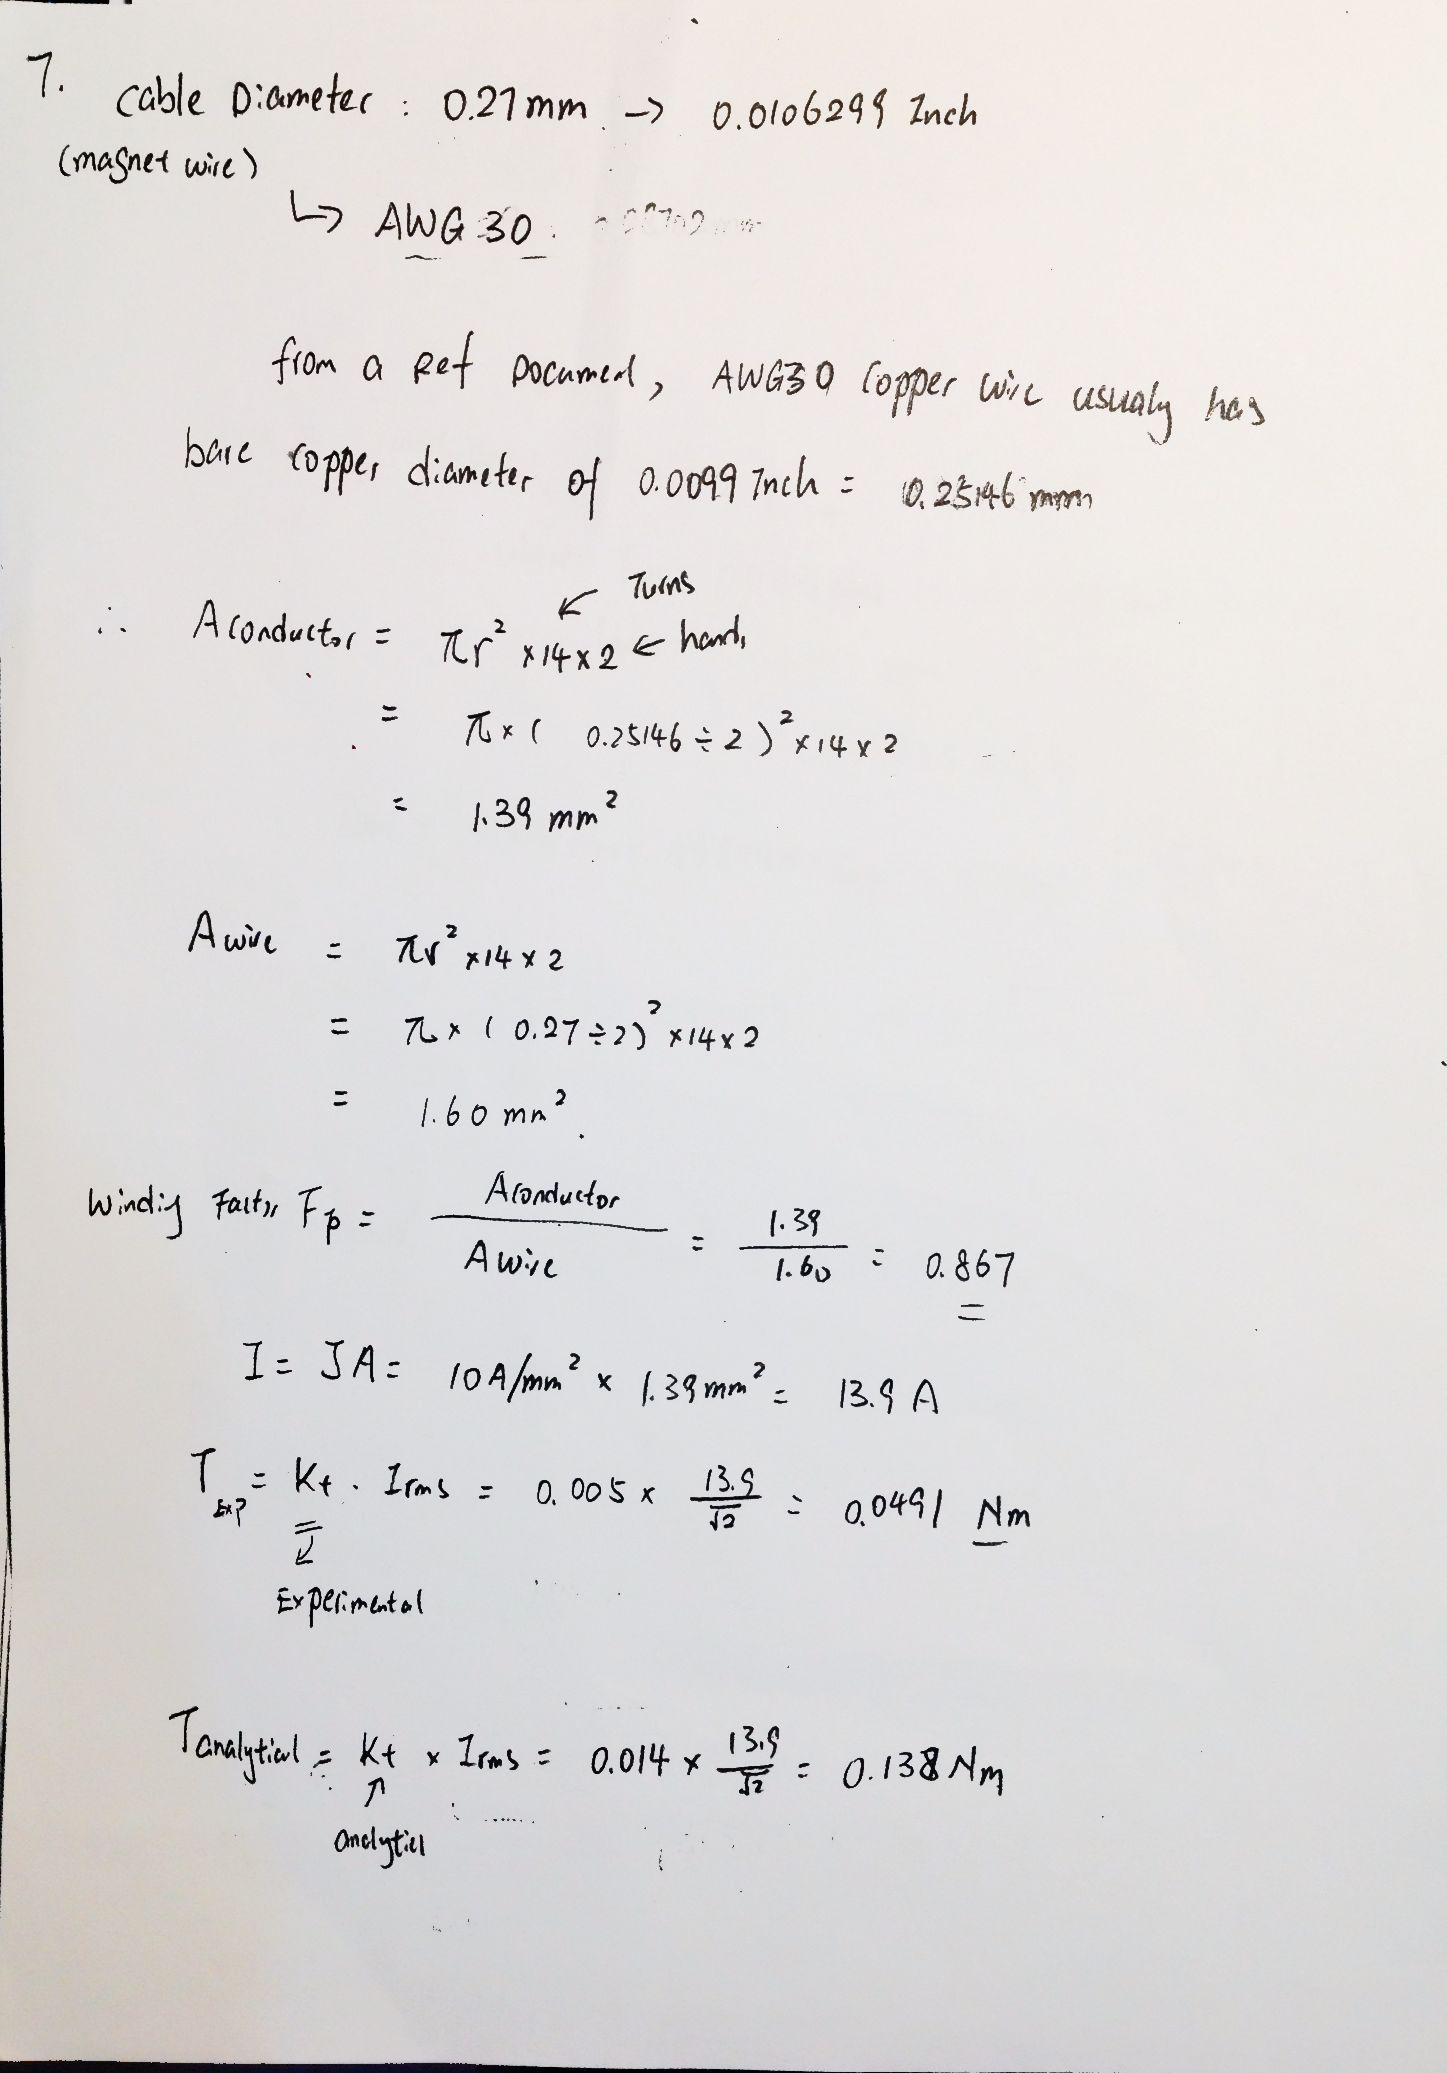 7.
Cable Diameter : 0.27mm. -> 0.0106299 Inch
(magnet wire)
↳ AWG 30.
from a Ref Document, AWG30 Copper wire usualy has
bare copper diameter of 0.0099 Inch = 0.25146 mm
∴ Aconductor = πr² ×14×2 ← Turns ← hands
= π×( 0.25146÷2 )² ×14×2
= 1.39 mm²
Awire = πr² ×14×2
= π×(0.27÷2)² ×14×2
= 1.60 mm².
Winding Factor Fp = Aconductor / Awire = 1.39 / 1.60 = 0.867
I = JA = 10A/mm² × 1.39mm² = 13.9 A
T Exp = Kt . Irms = 0.005 × 13.9 / √2 = 0.0491 Nm
Experimental
Tanalytical = Kt × Irms = 0.014 × 13.9 / √2 = 0.138 Nm
↑